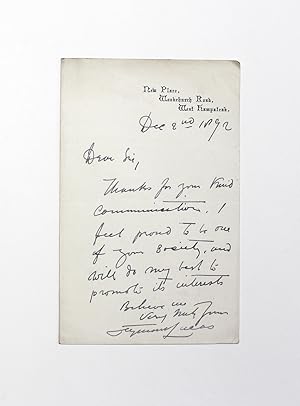 New Place,
Woodchurch Road,
West Hampstead.
Dec 2nd 1892
Dear Sir,
Thanks for your kind
communication. I
feel proud to be one
of your Society, and
will do my best to
promote its interests
Believe me
Very truly yours
Seymour Lucas